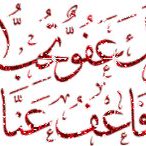 عَفُوٌّ تُحِبُّ
فَاعْفُ عَنَّا